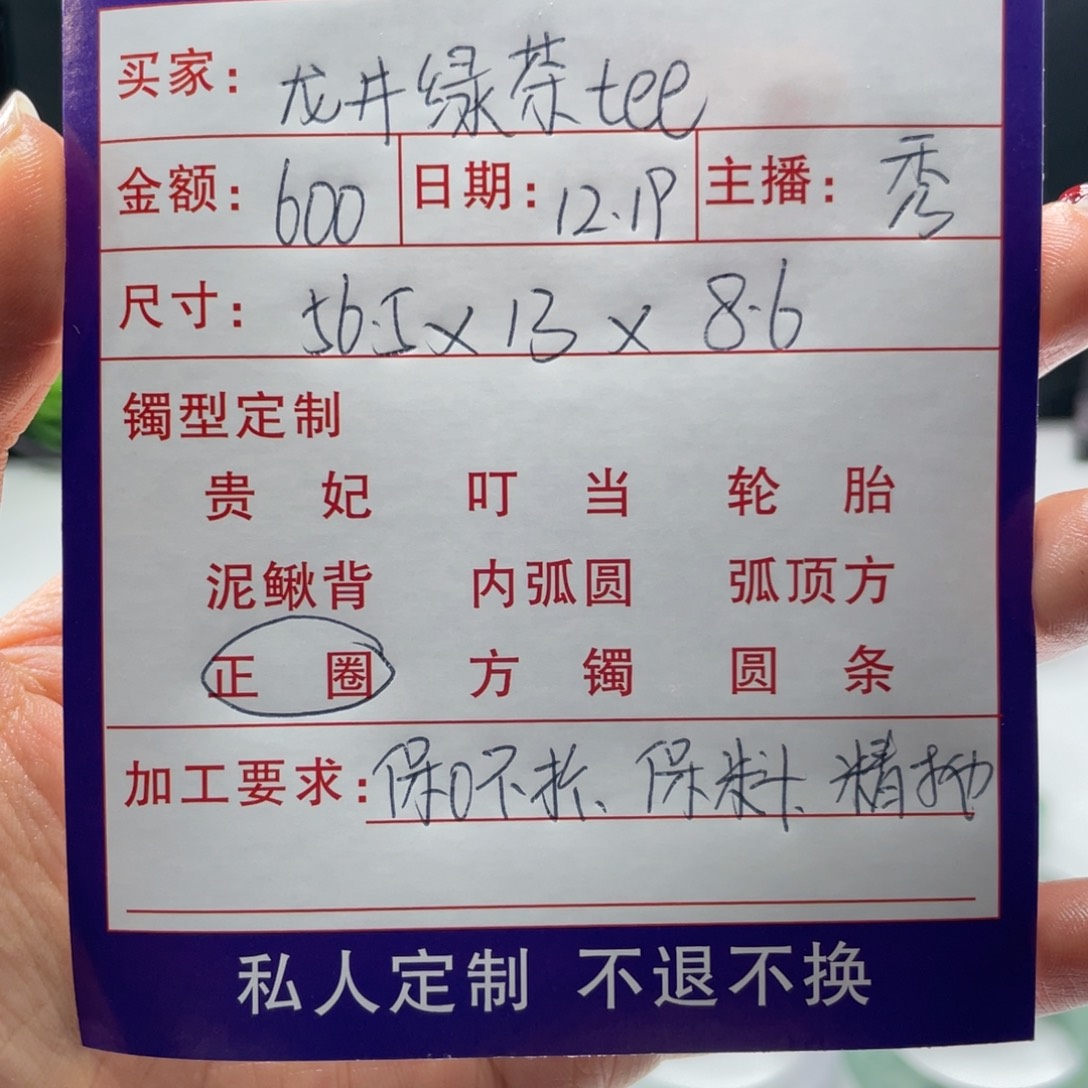 买家：龙井绿茶tee
金额：600 日期：12.19 主播：秀
尺寸：56.5x13x8.6
镯型定制
贵妃 叮当 轮胎
泥鳅背 内弧圆 弧顶方
正圈 方镯 圆条
加工要求：保口不拆、保料、精抛
私人定制 不退不换